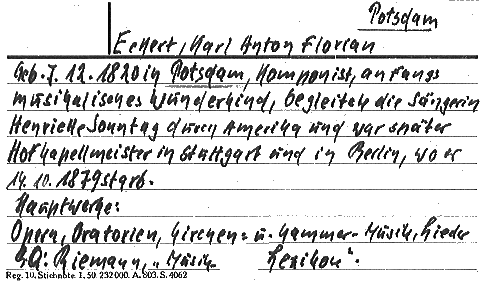 Potsdam
Eckert, Karl Anton Florian
Geb. 7. 12. 1820 in Potsdam, Komponist, anfangs
musikalisches Wunderkind, begleitete die Sängerin
Henriette Sonntag durch Amerika und war später
Hofkapellmeister in Stuttgart und in Berlin, wo er
14. 10. 1879 starb.
Hauptwerke:
Opern, Oratorien, Kirchen- u. Kammer-Musik, Lieder
Riemann, "Musik-Lexikon".
Reg. 10. Stichnote 1. 50. 232000. A. 803. S. 4062